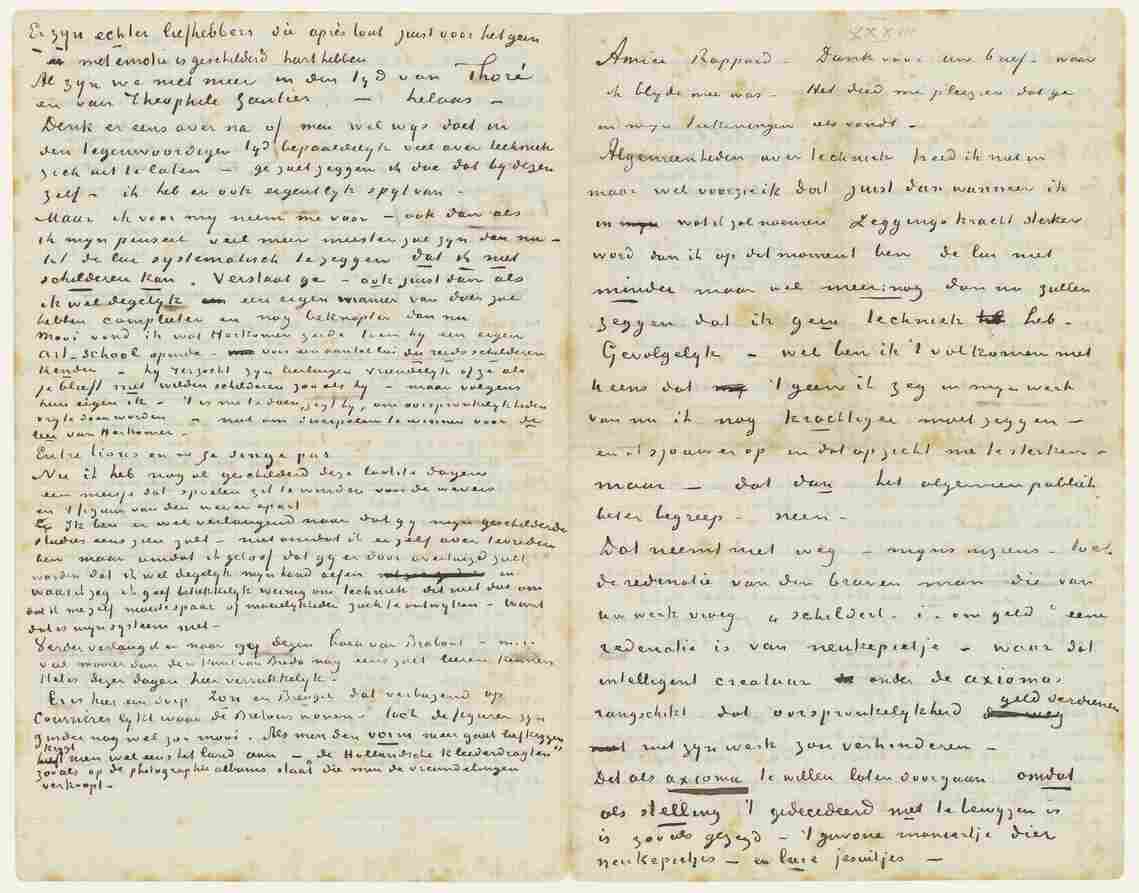 Er zyn echter liefhebbers die après tout juist voor hetgeen
met emotie is geschilderd hart hebben
Al zyn we niet meer in den tyd van Thoré
en van Theophile Gautier — helaas —
Denk er eens over na of men wel wys doet in
den tegenwoordigen tyd bepaaldelyk veel over techniek
zich uit te laten — ge zult zeggen ik doe dat by dezen
zelf — ik heb er ook eigentlyk spyt van —
Maar ik voor my neem me voor — ook dan als
ik myn penseel veel meer meester zal zyn dan nu —
tot de lui systematisch te zeggen dat ik niet
schilderen kan. Verstaat ge — ook juist dan als
ik wel degelyk een eigen manier van doen zal
hebben completer en nog beknopter dan nu
Mooi vond ik wat Herkomer zeide toen hy een eigen
art-school opende — voor een aantal lui die reeds schilderen
konden — hy verzocht zyn leerlingen vriendelyk of ze als
je blieft niet wilden schilderen zoo als hy — maar volgens
hun eigen ik — 't is me te doen, zegt hy, om oorspronkelykheden
vry te doen worden — niet om discipelen te winnen voor de
leer van Herkomer —
Entre lions on ne se singe pas
Nu ik heb nog al geschilderd deze laatste dagen
een meisje dat spoelen zit te winden voor de wevers
en 't figuur van den wever apart
Ik ben er wel verlangend naar dat gy myn geschilderde
studies eens zien zult — niet omdat ik er zelf over tevreden
ben maar omdat ik geloof dat gy er door overtuigd zult
worden dat ik wel degelyk myn hand oefen en
waar ik zeg ik geef betrekkelyk weinig om techniek dit niet is om
dat ik me zelf moeite spaar of moeielykheden zoek te ontwyken — want
dat is myn systeem niet —
Verder verlang ik er naar gy dezen hoek van Brabant — m.i.
veel mooier dan den kant van Breda nog eens zult leeren kennen
Het is dezer dagen hier verrukkelyk —
Er is hier een dorp Zon en Breugel dat verbazend op
Courrières lykt waar de Bretons wonen — toch de figuren zyn
ginder nog wel zoo mooi. Als men den vorm meer gaat liefkrygen
krygt men wel eens het land aan — de Hollandsche kleederdragten"
zooals op de photographie albums staat die men de vreemdelingen
verkoopt —
Amice Rappard — Dank voor uw brief — waar
ik blyde mee was — Het deed me pleizier dat ge
in myn teekeningen iets vondt —
Algemeenheden over techniek treed ik niet in
maar wel voorzie ik dat juist dan wanneer ik
in wat ik zal noemen zeggingskracht sterker
word dan ik op dit moment ben de lui niet
minder maar wel meer nog dan nu zullen
zeggen dat ik geen techniek heb —
Gevolgelyk — wel ben ik 't volkomen met
U eens dat 't geen ik zeg in myn werk
van nu ik nog krachtiger moet zeggen —
en ik sjouw er op en dat opzicht me te sterken —
maar — dat dan het algemeen publiek
beter begreep — neen —
Dat neemt niet weg — myns inziens — toch
de redenatie van den braven man die van
uw werk vroeg „schildert i. om geld" eene
redenatie is van neukepietje — waar dat
intelligent creatuur onder de axiomas
rangschikt dat oorspronkelykheid geld verdienen
met zyn werk zou verhinderen —
Dit als axioma te willen laten doorgaan omdat
als stelling 't gedecideerd niet te bewyzen is
is zooals gezegd — 't gewone maniertje dier
neukepietjes — en luie jesuitjes —